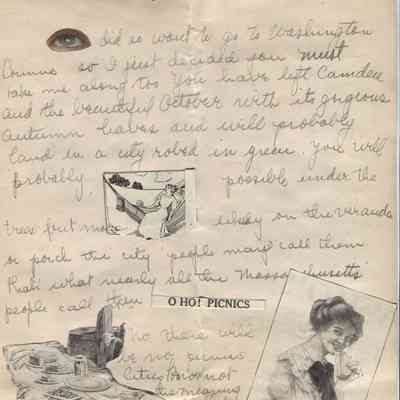 did so want to go to Washington
Corinne so I just decided you must
take me along too You have left Camden
and the beautiful October with its gorgeous
Autumn leaves and will probably
land in a city robed in green. You will
probably, possible under the
trees but more likely on the veranda
or porch the city people may call them
that's what nearly all the Massachusetts
people call them
O HO! PICNICS
No there will
be no picnics
Cities know not
the meaning